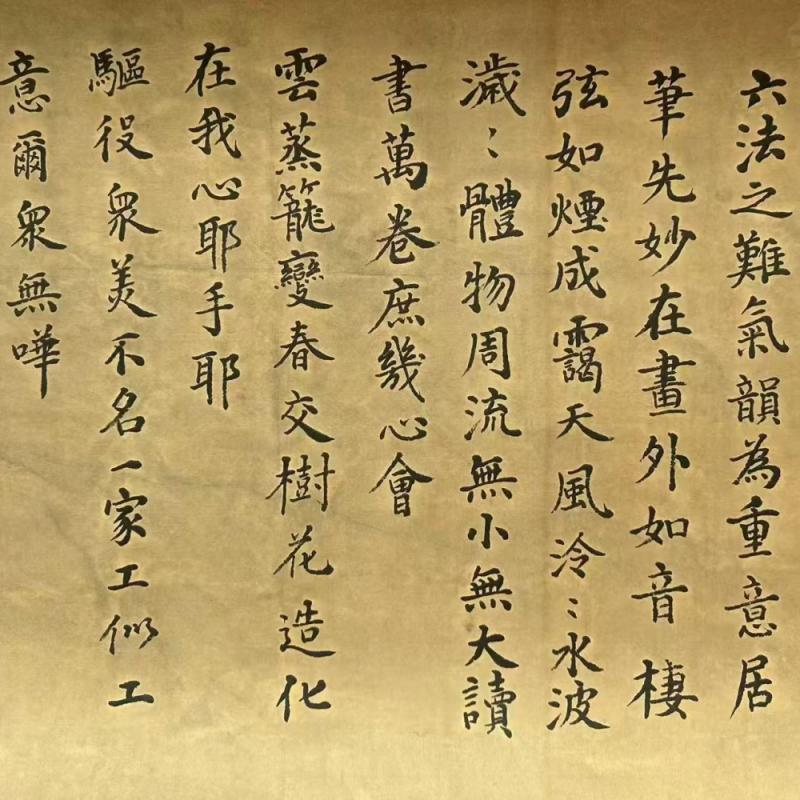 六法之難氣韻為重意居
筆先妙在畫外如音棲
弦如煙成靄天風泠〻水波
濊〻體物周流無小無大讀
書萬卷庶幾心會
雲蒸籠變春交樹花造化
在我心耶手耶
驅役眾美不名一家工似工
意爾眾無嘩